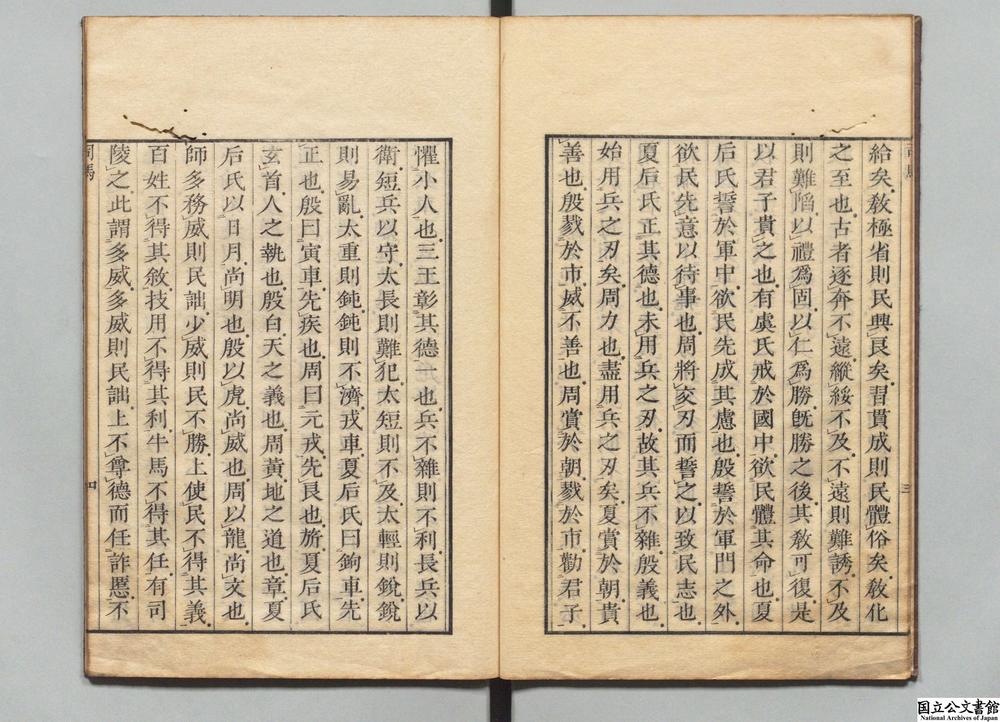 給矣敎極省則民興良矣習貫成則民體俗矣敎化
之至也古者逐奔不遠縱綏不及不遠則難誘不及
則難陷以禮爲固以仁爲勝旣勝之後其敎可復是
以君子貴之也有虞氏戒於國中欲民體其命也夏
后氏誓於軍中欲民先成其慮也殷誓於軍門之外
欲民先意以待事也周將交刃而誓之以致民志也
夏后氏正其德也未用兵之刃故其兵不雜殷義也
始用兵之刃矣周力也盡用兵之刃矣夏賞於朝貴
善也殷戮於市威不善也周賞於朝戮於市勸君子
三
懼小人也三王彰其德一也兵不雜則不利長兵以
衛短兵以守太長則難犯太短則不及太輕則銳銳
則易亂太重則鈍鈍則不濟戎車夏后氏曰鉤車先
正也殷曰寅車先疾也周曰元戎先良也旂夏后氏
玄首人之執也殷白天之義也周黃地之道也章夏
后氏以日月尚明也殷以虎尚威也周以龍尚文也
師多務威則民詘少威則民不勝上使民不得其義
百姓不得其敘技用不得其利牛馬不得其任有司
陵之此謂多威多威則民詘上不尊德而任詐慝不
司馬
四
国立公文書館
National Archives of Japan